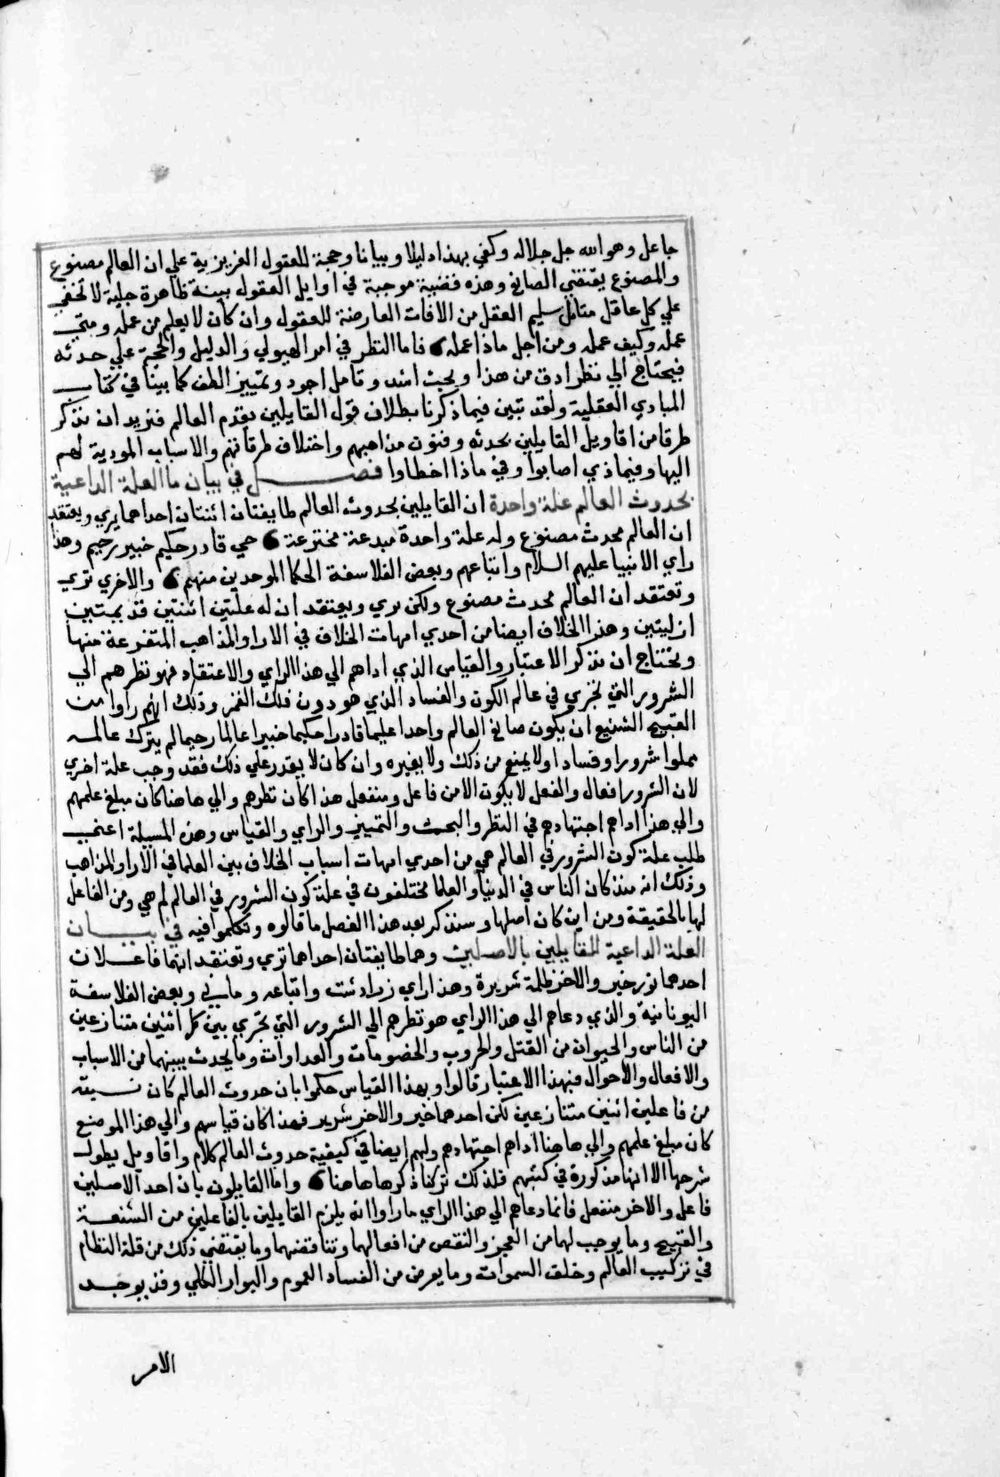 جاعل وهو الله جل جلاله وكفي بهذا دليلا وبيانا وحجة للعقول الغريزية علي ان العالم مصنوع
والمصنوع يقتضي الصانع وهذه قضية موجبة في اوايل العقول بينة ظاهرة جلية لا تخفي
علي كل عاقل متامل سليم العقل من الافات العارضة للعقول وان كان لا يعلم من عمله ومتي
عمله وكيف عمله ومن اجل ماذا عمله فاما النظر في امر الهيولي والدليل والحجة علي حدثه
فيحتاج الي نظر ادق من هذا وبحث اشد وتامل اجود وتمييز الطف كما بينا في كتاب
المبادي العقلية ولقد تبين فيما ذكرنا بطلان قول القايلين بقدم العالم فنريد ان نذكر
طرفا من اقاويل القايلين بحدثه وفنون مذاهبهم واختلاف طرقاتهم والاسباب المودية لهم
اليها وفيما ذي اصابوا وفي ماذا اخطاوا فصل في بيان ما العلة الداعية
بحدوث العالم علة واحدة ان القايلين بحدوث العالم طايفتان اثنتان احداهما يري ويعتقد
ان العالم محدث مصنوع وله علة واحدة مبدعة مخترعة حي قادر حكيم خبير رحيم وهذا
راي الانبيا عليهم السلام واتباعهم وبعض الفلاسفة الحكما الموحدين منهم والاخري تري
وتعتقد ان العالم محدث مصنوع ولكن يري ويعتقد ان له علتين اثنتين قديمتين
ازليتين وهذا الخلاف ايضا من احدي امهات الخلاف في الارا والمذاهب المتفرعة منها
ونحتاج ان نذكر الاعتبار والقياس الذي اداهم الي هذا الراي والاعتقاد فهو نظرهم الي
الشرور التي تجري في عالم الكون والفساد الذي هو دون فلك القمر وذلك انهم راوا من
القبيح الشنيع ان يكون صانع العالم واحدا عليما قادرا حكيما خبيرا عالما رحيما لم يترك عالمه
مملوا شرورا وفسادا ولا يمنع من ذلك ولا يغيره وان كان لا يقدر علي ذلك فقد وجب علة اخري
لان الشرور افعال والفعل لا يكون الا من فاعل ومنفعل هذا كان نظرهم والي هاهنا كان مبلغ علمهم
والي هذا اداهم اجتهادهم في النظر والبحث والتمييز والراي والقياس وهذه المسيلة اعني
طلب علة كون الشرور في العالم هي من احدي امهات اسباب الخلاف بين العلما في الارا والمذاهب
وذلك انه منذ كان الناس في الدنيا والعلما مختلفون في علة كون الشرور في العالم لم هي ومن الفاعل
لها بالحقيقة ومن اين كان اصلها وسنذكر بعد هذا الفصل ما قالوه وتكلموا فيه في بيان
العلة الداعية للقايلين بالاصلين وهما طايفتان احداهما تري وتعتقد انهما فاعلان
احدهما نور خير والاخر ظلمة شريرة وهذا راي زرادشت واتباعه وماني وبعض الفلاسفة
اليونانية والذي دعاهم الي هذا الراي هو نظرهم الي الشرور التي تجري بين كل اثنين متنازعين
من الناس والحيوان من القتل والحروب والخصومات والعداوات وما يحدث بينهما من الاسباب
والافعال والاحوال فبهذا الاعتبار قالوا وبهذا القياس حكموا بان حدوث العالم كان نسبته
من فاعلين اثنين متنازعين لكن احدهما خير والاخر شرير فهذا كان قياسهم والي هذا الموضع
كان مبلغ علمهم والي هاهنا اداهم اجتهادهم ولهم ايضا في كيفية حدوث العالم كلام واقاويل يطول
شرحها الا انها مذكورة في كتبهم فلذلك تركنا ذكرها هاهنا واما القايلون بان احد الاصلين
فاعل والاخر منفعل فانما دعاهم الي هذا الراي ما راوا انه يلزم القايلين بالفاعلين من الشنعة
والقبيح وما يوجب لهما من العجز والنقص من افعالها وتناقضهما وما يقتضي ذلك من قلة النظام
في تركيب العالم وخلق السموات وما يعرض من الفساد العموم والبوار الكلي وقد يوجد
الامر